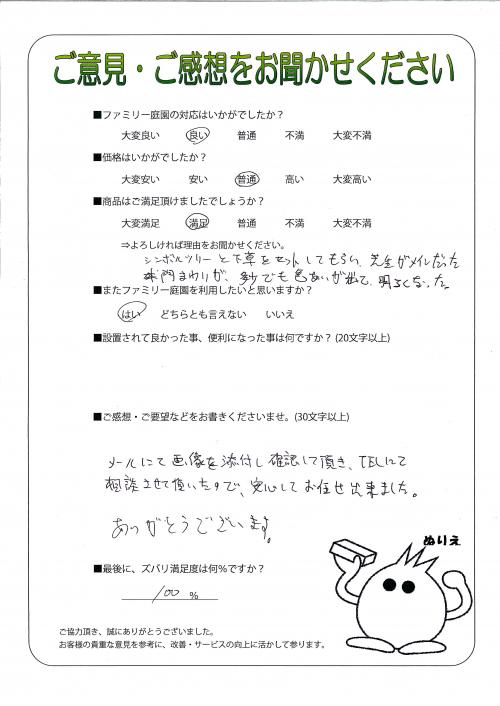 ご意見・ご感想をお聞かせください
■ファミリー庭園の対応はいかがでしたか？
大変良い 良い 普通 不満 大変不満
■価格はいかがでしたか？
大変安い 安い 普通 高い 大変高い
■商品はご満足頂けましたでしょうか？
大変満足 満足 普通 不満 大変不満
⇒よろしければ理由をお聞かせください。
シンボルツリーと下草をセットしてもらい、
門まわりが、 でも色あいが出て、明るくなった。
■またファミリー庭園を利用したいと思いますか？
はい どちらとも言えない いいえ
■設置されて良かった事、便利になった事は何ですか？(20文字以上)
■ご感想・ご要望などをお書きくださいませ。(30文字以上)
メールにて画像を添付し確認して頂き、TELにて
相談させて頂いたので、安心してお任せ出来ました。
ありがとうございます。
ぬりえ
■最後に、ズバリ満足度は何%ですか？
100 %
ご協力頂き、誠にありがとうございました。
お客様の貴重な意見を参考に、改善・サービスの向上に活かして参ります。